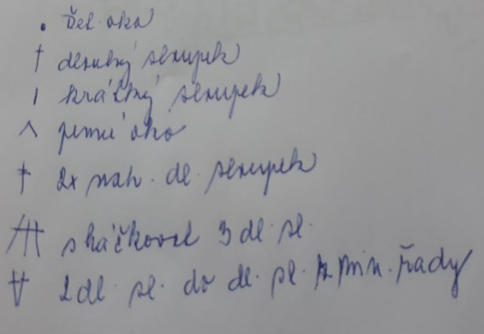 • řet. oko
† dlouhý sloupek
ı krátký sloupek
^ pevné oko
‡ 2x nah. dl. sloupek
sháčkovat 3 dl. sl.
2 dl. sl. do dl. sl. z min. řady